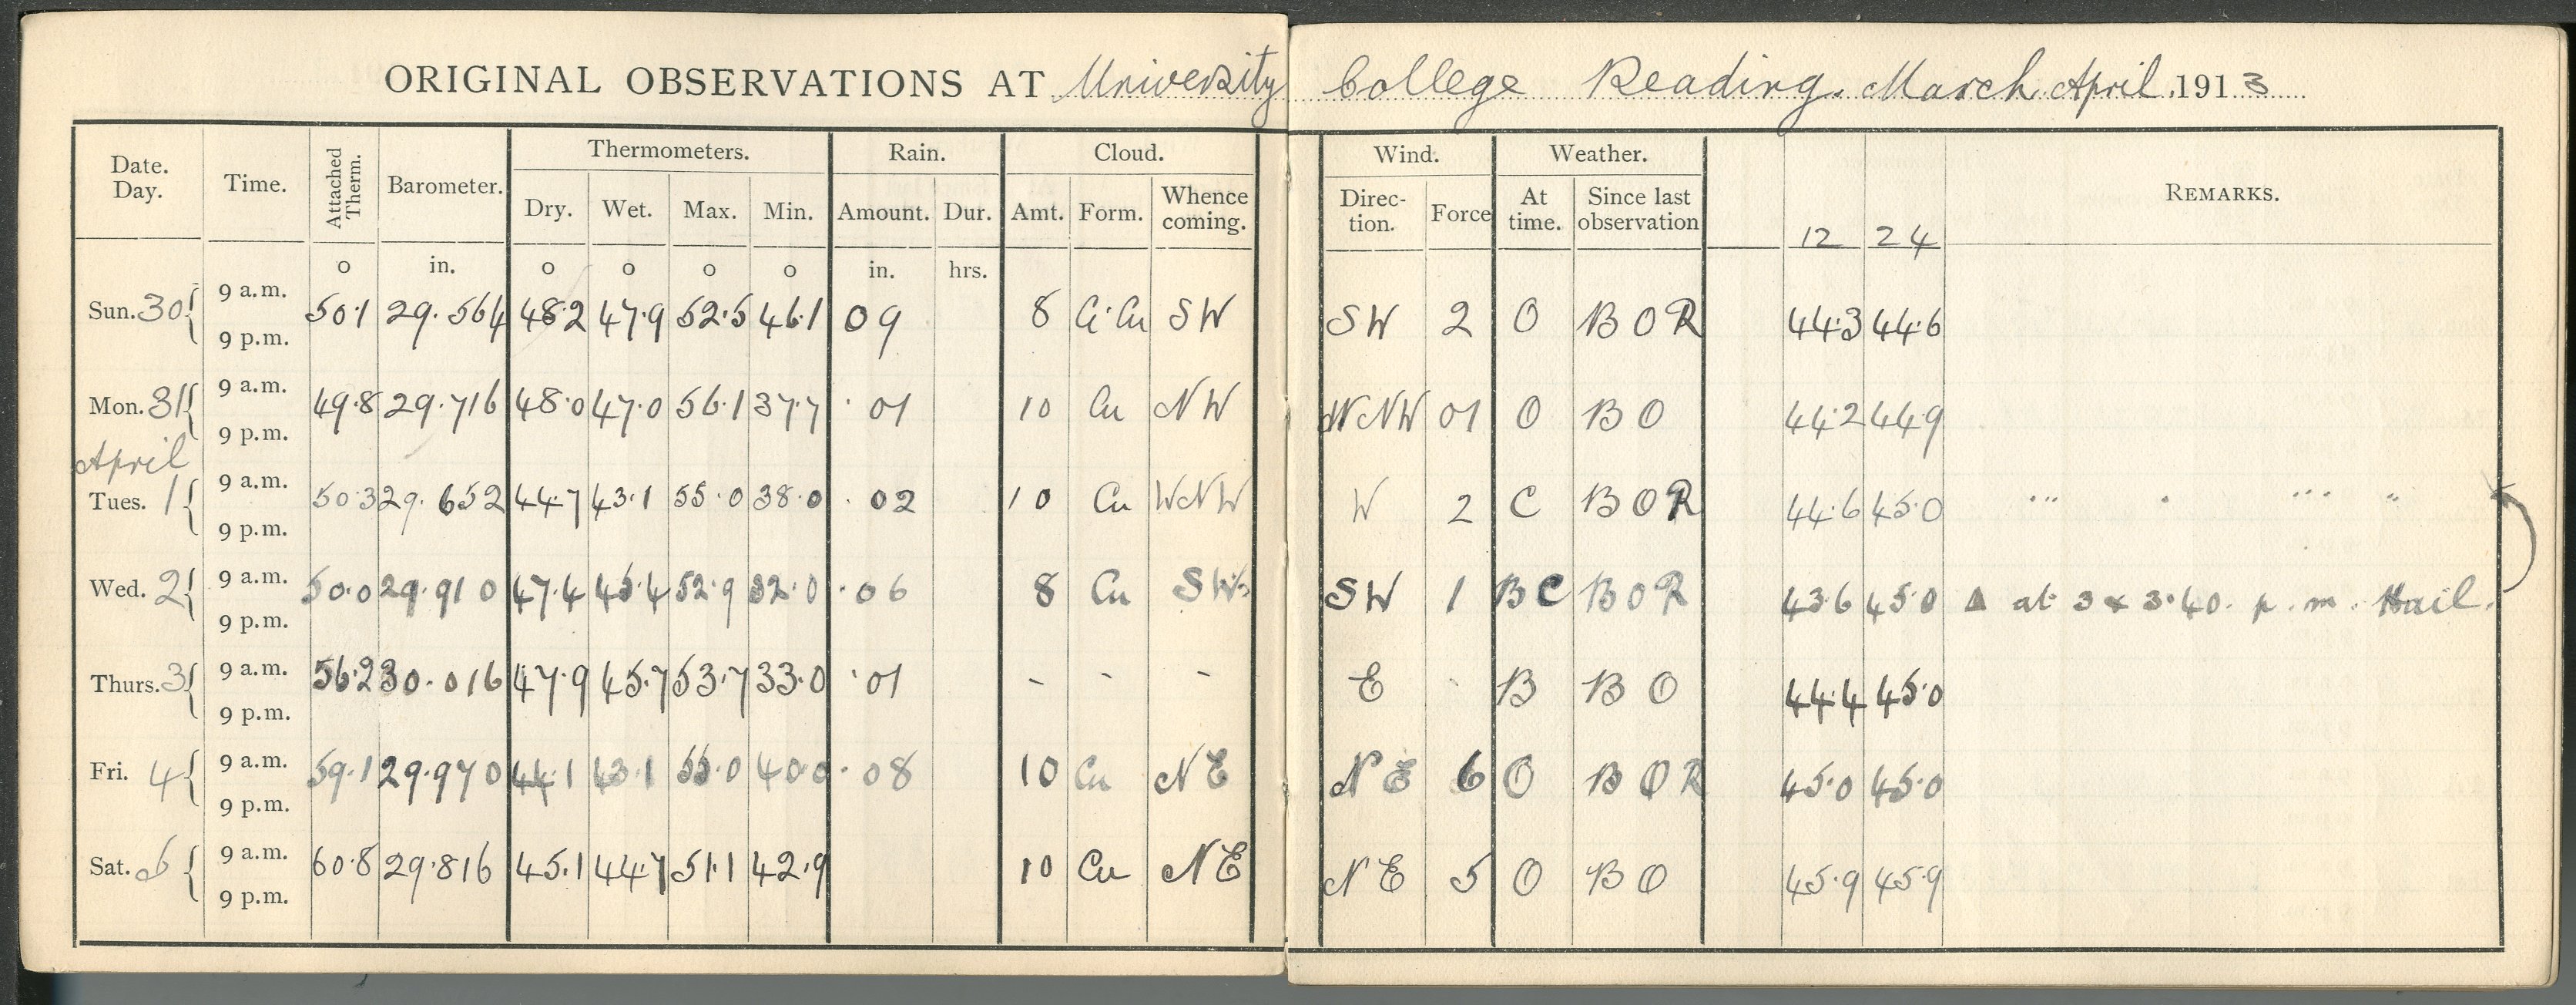 ORIGINAL OBSERVATIONS AT University College Reading. March April 1913
Date. Day. Time. Attached Therm. Barometer. Thermometers. Rain. Cloud. Wind. Weather. REMARKS.
Dry. Wet. Max. Min. Amount. Dur. Amt. Form. Whence coming. Direc- tion. Force At time. Since last observation 12 24
o in. o o o o in. hrs.
Sun. 30 { 9 a.m. 50.1 29.564 48.2 47.9 52.5 46.1 09 8 Ci-Cu SW SW 2 O B O R 44.3 44.6
9 p.m.
Mon. 31 { 9 a.m. 49.8 29.716 48.0 47.0 56.1 37.7 .01 10 Cu NW WNW 01 O B O 44.2 44.9
9 p.m.
April
Tues. 1 { 9 a.m. 50.3 29.652 44.7 43.1 55.0 38.0 .02 10 Cu WNW W 2 C B O R 44.6 45.0
9 p.m.
Wed. 2 { 9 a.m. 50.0 29.910 47.4 45.4 52.9 32.0 .06 8 Cu SW SW 1 B C B O R 43.6 45.0 ▲ at 3 & 3.40. p.m. Hail.
9 p.m.
Thurs. 3 { 9 a.m. 56.2 30.016 47.9 45.7 53.7 33.0 .01 - - - E - B B O 44.4 45.0
9 p.m.
Fri. 4 { 9 a.m. 59.1 29.970 44.1 43.1 55.0 40.0 .08 10 Cu NE NE 6 O B O R 45.0 45.0
9 p.m.
Sat. { 9 a.m. 60.8 29.816 45.1 44.7 51.1 42.9 10 Cu NE NE 5 O B O 45.9 45.9
9 p.m.